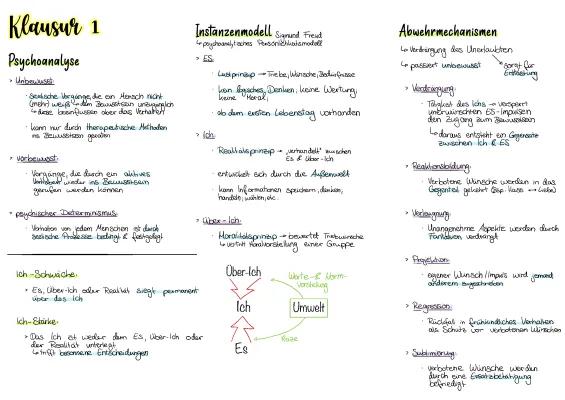 Klausur 1
Psychoanalyse
> Unbewusst:
· seelische Vorgänge, die ein Mensch nicht
(mehr) weiß → dem Bewusstsein unzugänglich
↳ diese beeinflussen aber das Verhalten
· kann nur durch therapeutische Methoden
ins Bewusstsein geraten
> Vorbewusst:
· Vorgänge, die durch ein aktives
wieder ins Bewusstsein
gerufen werden können
> psychischer Determinismus:
· Verhalten von jedem Menschen ist durch
seelische Prozesse bedingt & festgelegt
Ich-Schwäche:
> Es, Über-Ich oder Realität siegt permanent
über das Ich
Ich-Stärke:
> Das Ich ist weder dem Es, Über-Ich oder
der Realität unterlegt
↳ trifft besonnene Entscheidungen
Instanzenmodell Sigmund Freud
↳ psychoanalytisches Persönlichkeitsmodell
> ES:
· Lustprinzip → Triebe, Wünsche, Bedürfnisse
· kein logisches Denken, keine Wertung,
keine Moral
· ab dem ersten Lebenstag vorhanden
> Ich:
· Realitätsprinzip → "verhandelt" zwischen
Es & Über-Ich
· entwickelt sich durch die Außenwelt
· kann Informationen speichern, denken,
handeln, wählen, etc.
> Über-Ich:
· Moralitätsprinzip → bewertet Triebwünsche
↳ vertritt Moralvorstellung einer Gruppe
Über-Ich
Werte- & Norm-
vorstellung
Ich
Umwelt
Es
Reize
Abwehrmechanismen
↳ Verdrängung des Unerlaubten
↳ passiert unbewusst
sorgt für
Entlastung
> Verdrängung:
· Tätigkeit des Ichs → versperrt
unerwünschten ES-Impulsen
den Zugang zum Bewusstsein
↳ daraus entsteht ein Gegensatz
zwischen Ich & ES
> Reaktionsbildung:
· Verbotene Wünsche werden in das
Gegenteil gekehrt (Bsp. Hass ↔ Liebe)
> Verleugnung:
· Unangenehme Aspekte werden durch
Fantasien verdrängt
> Projektion:
· eigener Wunsch/Impuls wird jemand
anderem zugeschrieben
> Regression:
· Rückfall in frühkindliches Verhalten
als Schutz vor verbotenen Wünschen
> Sublimierung:
· verbotene Wünsche werden
durch eine Ersatzbetätigung
befriedigt